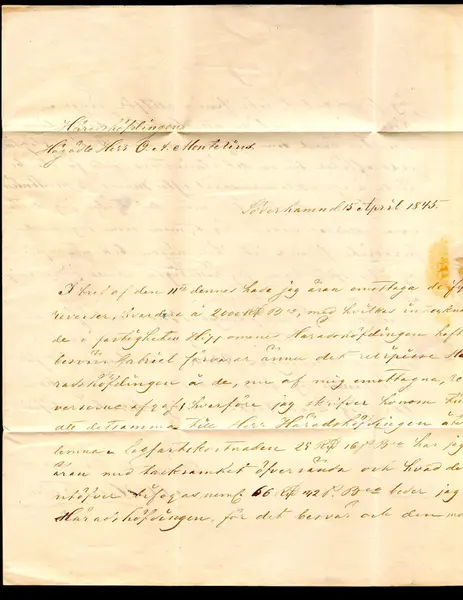 Häradshöfdingen
Högädle Herr O. A. Montelius.
Söderhamn d 15 April 1845.
I bref af den 11te dennes have jag äran emottaga de
reverser, hvardera å 2000 Rd Bco, med hvilka
de i fastigheten Häradshöfdingen haft
besvär förvarar ännu det Hä
radshöfdingen å de, nu af mig emottagna, re
verserne hvarföre jag skrifver honom till
att detsamma till Herr Häradshöfdingen åter
lemna Lagfartskostnaden 25 Rd 16 s Bco har jag
äran med tacksamhet öfversända och hvad de
utöfver 66 Rd 42 s. Bco beder jag
Häradshöfdingen, för det besvär och den